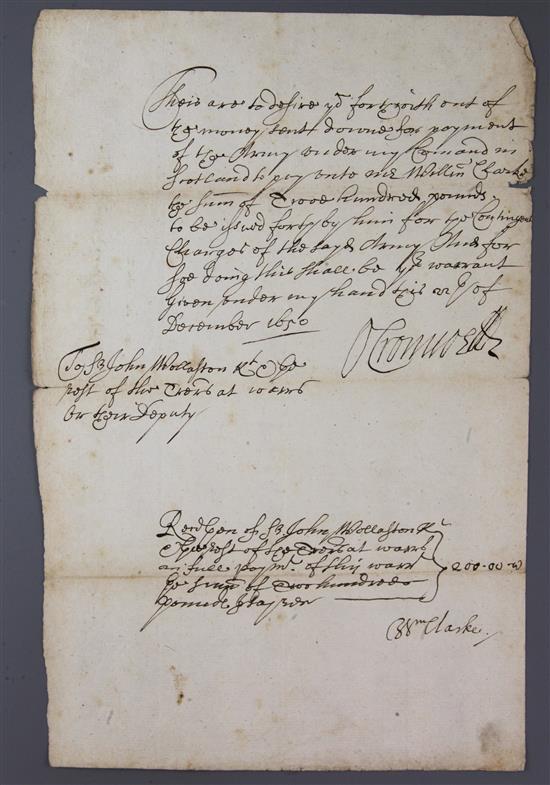 Theis are to desire yᵒ forthwith out of
the money sent downe for payment
of the Army under my Comand in
Scotland to pay unto mʳ Willm Clarke
the summ of Twoe hundred pounds
to be issued forth by him for the Contingent
Charges of the sayd Army And for
soe doing this shall be yᵒʳ warrant
Given under my hand this 22ᵗʰ of
December 1650
O Cromwell
To Sʳ John Wollaston Kᵗ & the
rest of the Trērs at warrs
Or their Deputy
Recd then of Sʳ John Wollaston Kᵗ
& the rest of the Trērs at warrs
in full paymᵗ of this warrᵗ
the summ of Two hundred
pounds I say Rec
200-00-00
Wm Clarke